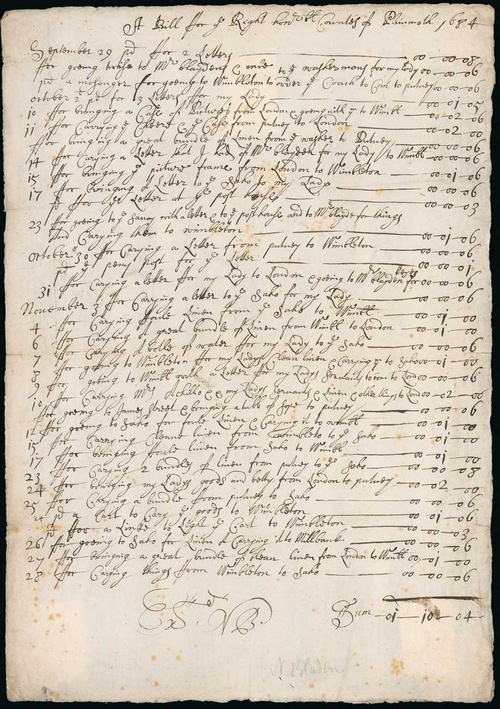 A Bill ffor ye Right honrble Countes of Plimmoth 1684
September 29 pd ffor 2 Letters — 00 - 00 - 08
ffor going twise to Mrs & once to ye washerwoman for my lady — 00 - 00 - 06
pd a mesenger ffor going to Wimbleton to order ye Coach to Com to putney — 00 - 00 - 06
october 2 pd for 3 letters ffor my Lady — 00 - 01 - 05
10 ffor bringing a Case of Pictures from London & going with ym to Wimbl — 00 - 02 - 06
11 ffor Carrying ye Case from putney to London — 00 - 02 - 00
ffor bringing a great bundle of Linen from ye washer to Putney — 00 - 00 - 06
14 ffor Carying a Letter of Mrs for my Lady to Wimbl — 00 - 00 - 06
15 ffor bringing ye picture frame from London to Wimbleton — 00 - 01 - 06
17 ffor bringing a Letter to ye Sato ffor my Lady — 00 - 00 - 06
pd ffor ye Letter at ye post house — 00 - 00 - 03
23 ffor going to ye with a letter & to ye post house and to Mrs for things
and Carrying them to wimbleton — 00 - 01 - 06
October 30 ffor Carrying a Letter from putney to Wimbleton — 00 - 00 - 06
pd ye peny post ffor ye letter — 00 - 00 - 01
31 ffor Carying a letter for my Lady to London & going to Mrs for — 00 - 00 - 06
November 3 ffor Carying a letter to ye Sato for my Lady
4 ffor Carying foule Linen from ye Sato to Wimbl — 00 - 01 - 06
6 ffor Carying a great bundle of Linen from Wimbl to London — 00 - 01 - 06
7 ffor Carying of water for my Lady to ye Sato
8 ffor going to Wimbleton for my Ladys clean linen & Carrying it to Sato — 00 - 01 - 06
9 ffor going to Wimbl with a Letter for my Ladys servants to com to Lond — 00 - 00 - 06
10 ffor Carying Mrs & my Ladys servants & Linen & other things to Lond — 00 - 02 - 00
ffor going to James Street & bringing a tube of Sope to putney — 00 - 00 - 06
12 ffor going to Sato for foule Linen & Carying it to wimbl — 00 - 01 - 06
15 ffor Carrying Cleane linen from wimbleto to ye Sato — 00 - 01 - 06
17 ffor bringing foule linen from Sato to Wimbl — 00 - 00 - 06
23 ffor Carying 2 bundles of linen from putney to ye Sato — 00 - 00 - 08
24 ffor bringing my Ladys goods and betty from London to putney — 00 - 02 - 00
25 ffor Carying a bundle from putney to Sato — 00 - 00 - 06
pd a Cart to Cary ye goods to Wimbleton — 00 - 01 - 06
pd ffor a Linke to Light ye Cart to Wimbleton — 00 - 00 - 03
26 ffor going to Sato for Linen & Carying it to Millbank — 00 - 00 - 06
27 ffor bringing a great bundle of clean linen from London to Wimbl — 00 - 01 - 00
28 ffor Carying things from Wimbleton to Sato — 00 - 00 - 06
Sum — 01 - 10 - 04
N Bladen